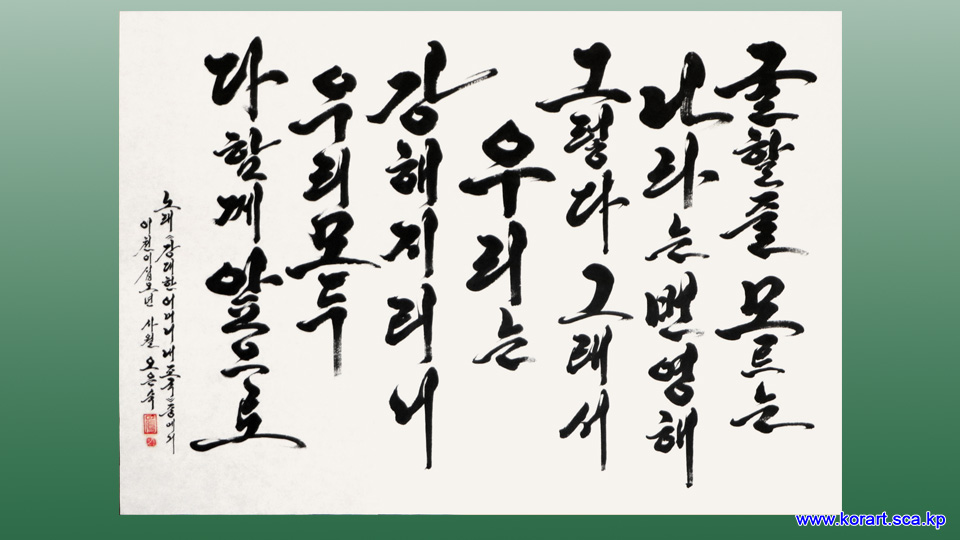 굴할줄 모르는
나라는 번영해
그렇다 그래서
우리는
강해지리니
우리모두
다 함께 앞으로
노래 《강대한 어머니 내 조국》중에서
이천이십오년 사월 오은숙
www.korart.sca.kp